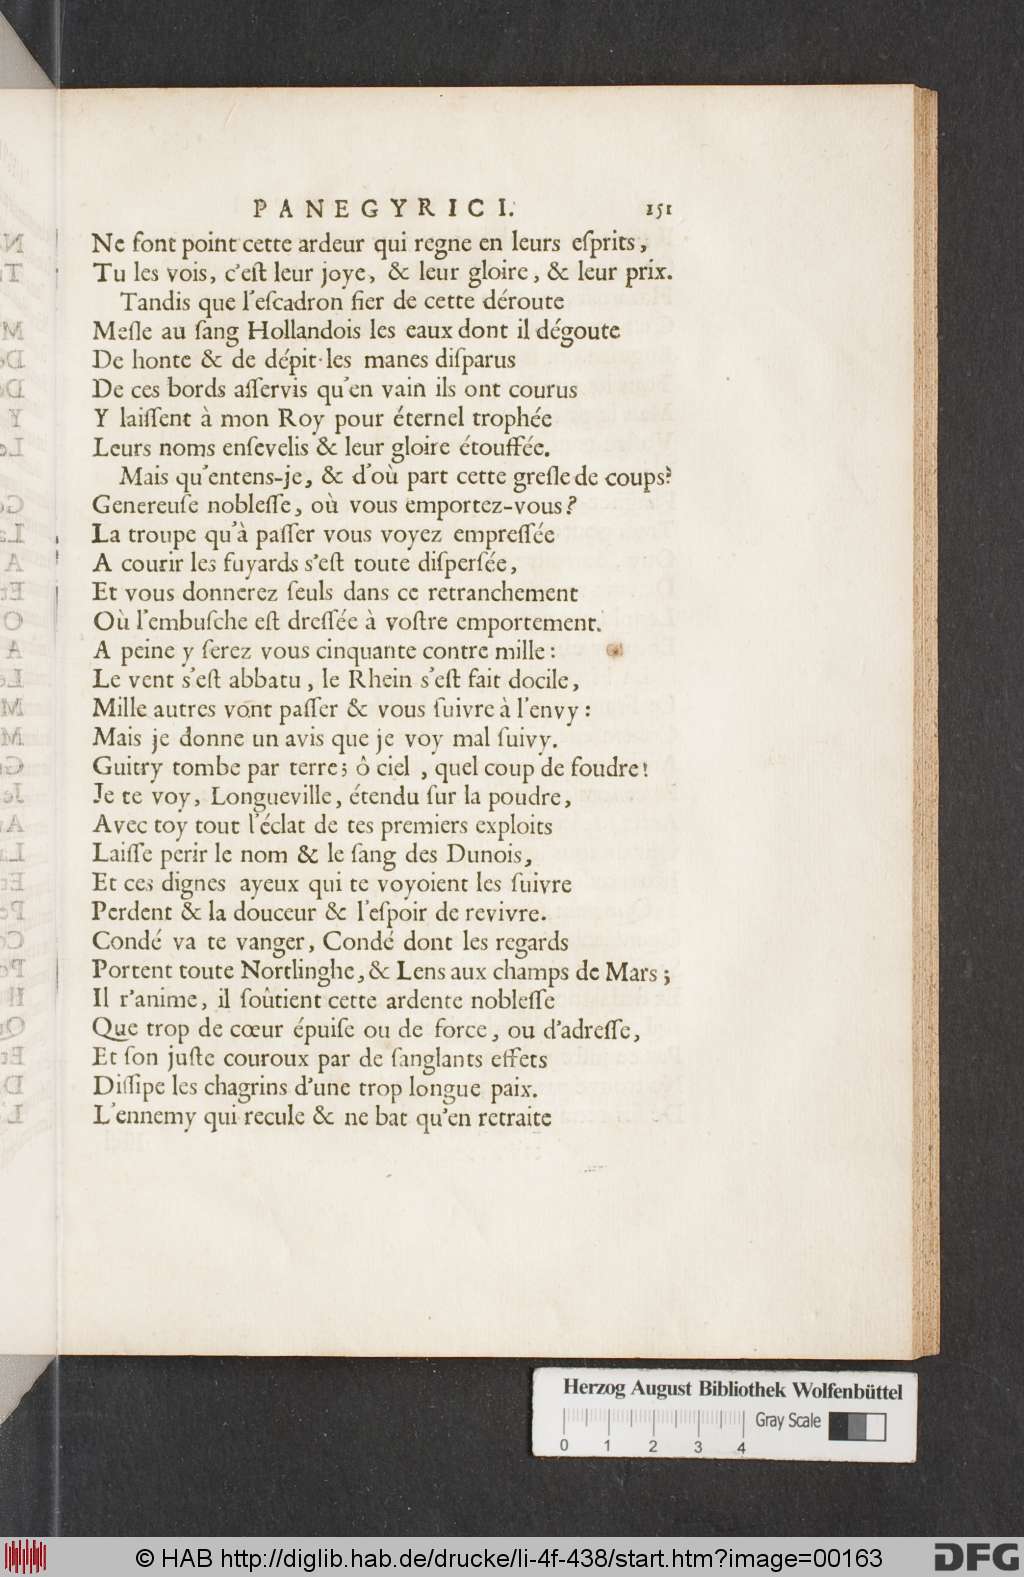 PANEGYRICI. 151
Ne font point cette ardeur qui regne en leurs eſprits,
Tu les vois, c'eſt leur joye, & leur gloire, & leur prix.
Tandis que l'eſcadron fier de cette déroute
Meſle au ſang Hollandois les eaux dont il dégoute
De honte & de dépit les manes diſparus
De ces bords aſſervis qu'en vain ils ont courus
Y laiſſent à mon Roy pour éternel trophée
Leurs noms enſevelis & leur gloire étouffée.
Mais qu'entens-je, & d'où part cette greſle de coups?
Genereuſe nobleſſe, où vous emportez-vous?
La troupe qu'à paſſer vous voyez empreſſée
A courir les fuyards s'eſt toute diſperſée,
Et vous donnerez ſeuls dans ce retranchement
Où l'embuſche eſt dreſſée à voſtre emportement.
A peine y ſerez vous cinquante contre mille:
Le vent s'eſt abbatu, le Rhein s'eſt fait docile,
Mille autres vont paſſer & vous ſuivre à l'envy:
Mais je donne un avis que je voy mal ſuivy.
Guitry tombe par terre; ô ciel, quel coup de foudre!
Je te voy, Longueville, étendu ſur la poudre,
Avec toy tout l'éclat de tes premiers exploits
Laiſſe perir le nom & le ſang des Dunois,
Et ces dignes ayeux qui te voyoient les ſuivre
Perdent & la douceur & l'eſpoir de revivre.
Condé va te vanger, Condé dont les regards
Portent toute Nortlinghe, & Lens aux champs de Mars;
Il r'anime, il ſoûtient cette ardente nobleſſe
Que trop de cœur épuiſe ou de force, ou d'adreſſe,
Et ſon juſte couroux par de ſanglants effets
Diſſipe les chagrins d'une trop longue paix.
L'ennemy qui recule & ne bat qu'en retraite
Herzog August Bibliothek Wolfenbüttel
Gray Scale
0 1 2 3 4
© HAB http://diglib.hab.de/drucke/li-4f-438/start.htm?image=00163
DFG